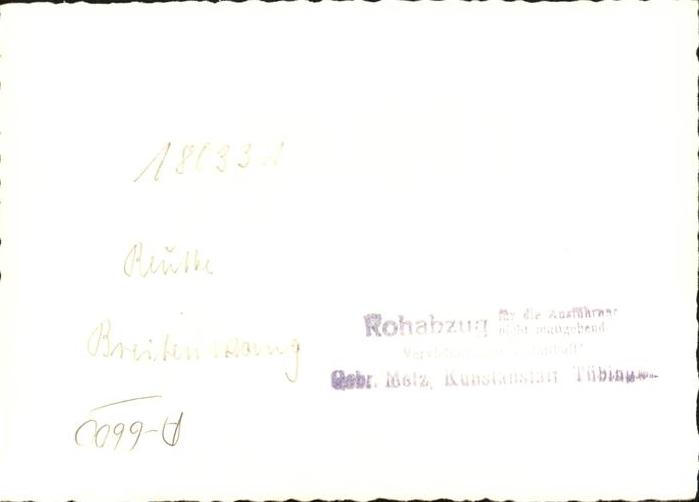 180331
Reutte
Breitenwang
A-6600
Rohabzug für die Ausführung
nicht maßgebend
Gebr. Metz, Kunstanstalt Tübingen